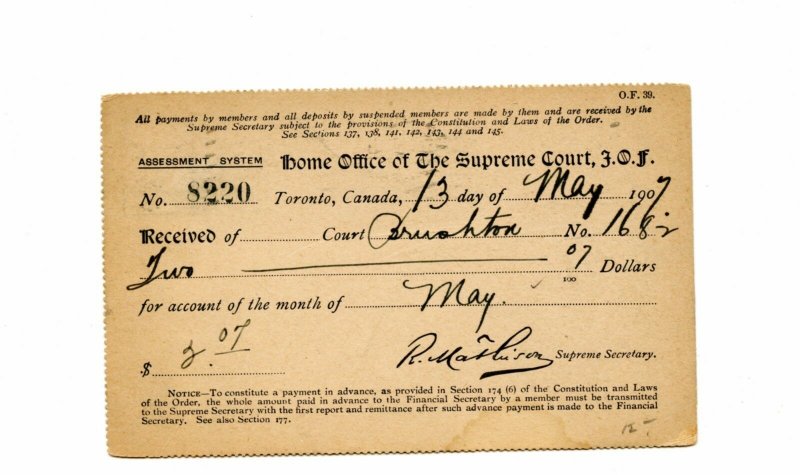 O.F. 39.
All payments by members and all deposits by suspended members are made by them and are received by the
Supreme Secretary subject to the provisions of the Constitution and Laws of the Order.
See Sections 137, 138, 141, 142, 143, 144 and 145.
ASSESSMENT SYSTEM Home Office of The Supreme Court, I.O.F.
No. 8220 Toronto, Canada, 13 day of May 1907
Received of Court Brushton No. 1682
Two 07/100 Dollars
for account of the month of May.
$ 2.07 R. Mathison Supreme Secretary.
NOTICE—To constitute a payment in advance, as provided in Section 174 (6) of the Constitution and Laws
of the Order, the whole amount paid in advance to the Financial Secretary by a member must be transmitted
to the Supreme Secretary with the first report and remittance after such advance payment is made to the Financial
Secretary. See also Section 177.